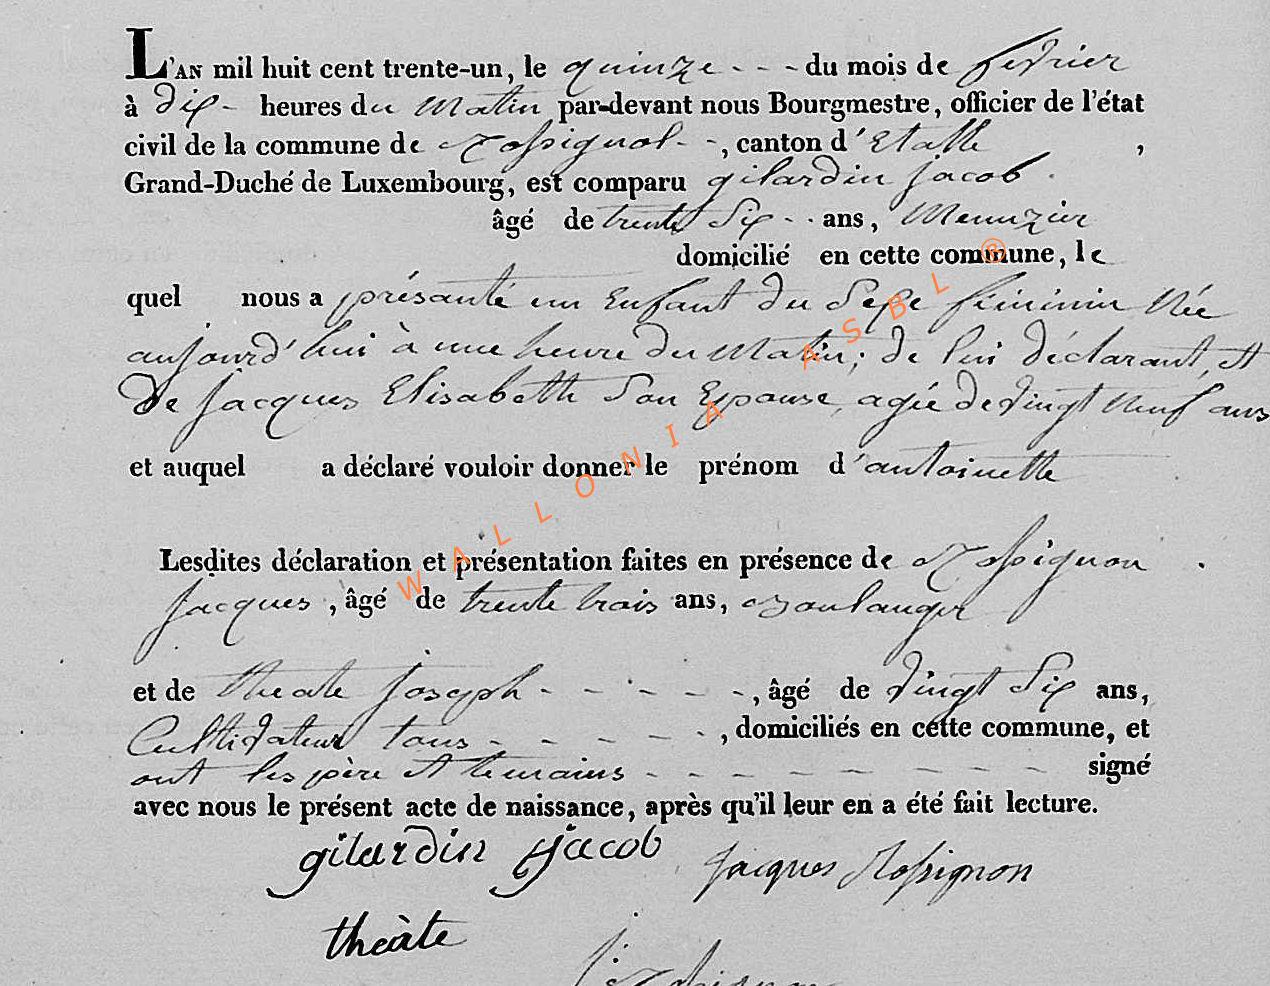 L'AN mil huit cent trente-un, le quinze - - - du mois de fevrier
à dix - heures du Matin par-devant nous Bourgmestre, officier de l'état
civil de la commune de Rossignol - -, canton d'Etalle ,
Grand-Duché de Luxembourg, est comparu gilardin jacob
âgé de trente Six - - ans, Menuzier
domicilié en cette commune, le
quel nous a présanté un Enfant du Sexe féminin Née
aujourd'hui à une heure du Matin; de lui déclarant, et
de Jacques Elisabeth Son Epouse, agée de vingt Neuf ans
et auquel a déclaré vouloir donner le prénom d'antoinette
Lesdites déclaration et présentation faites en présence de Rossignon
Jacques, âgé de trente trois ans, Boulanger
et de theate Joseph - - - - - -, âgé de vingt Six ans,
Cultivateur tous - - - - - -, domiciliés en cette commune, et
ont les père et temains - - - - - - - - - signé
avec nous le présent acte de naissance, après qu'il leur en a été fait lecture.
gilardin jacob Jacques Rossignon
theàte
WALLONIA ASBL ®